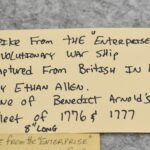 pike From the "Enterprise
volutionary War Ship
aptured From British In
y Ethan Allen.
ne of Benedict Arnold's
leet of 1776 & 1777
8" Long
e From the "Enterprise"